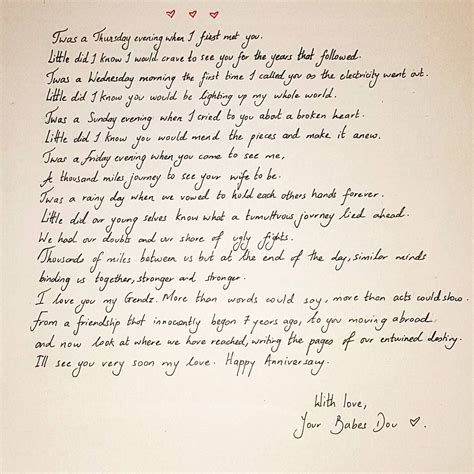 Twas a Thursday evening when I first met you.
Little did I know I would crave to see you for the years that followed.
Twas a Wednesday morning the first time I called you as the electricity went out.
Little did I know you would be lighting up my whole world.
Twas a Sunday evening when I cried to you about a broken heart.
Little did I know you would mend the pieces and make it anew.
Twas a friday evening when you came to see me,
A thousand miles journey to see your wife to be.
Twas a rainy day when we vowed to hold each others hands forever.
Little did our young selves know what a tumultuous journey lied ahead.
We had our doubts and our share of ugly fights.
Thousands of miles between us but at the end of the day, similar minds
binding us together, stronger and stronger.
I love you my. More than words could say, more than acts could show.
From a friendship that innocently began 7 years ago, to you moving abroad
and now look at where we have reached, writing the pages of our entwined destiny.
I'll see you very soon my love. Happy Anniversary.
With love,
Your Babes Dou